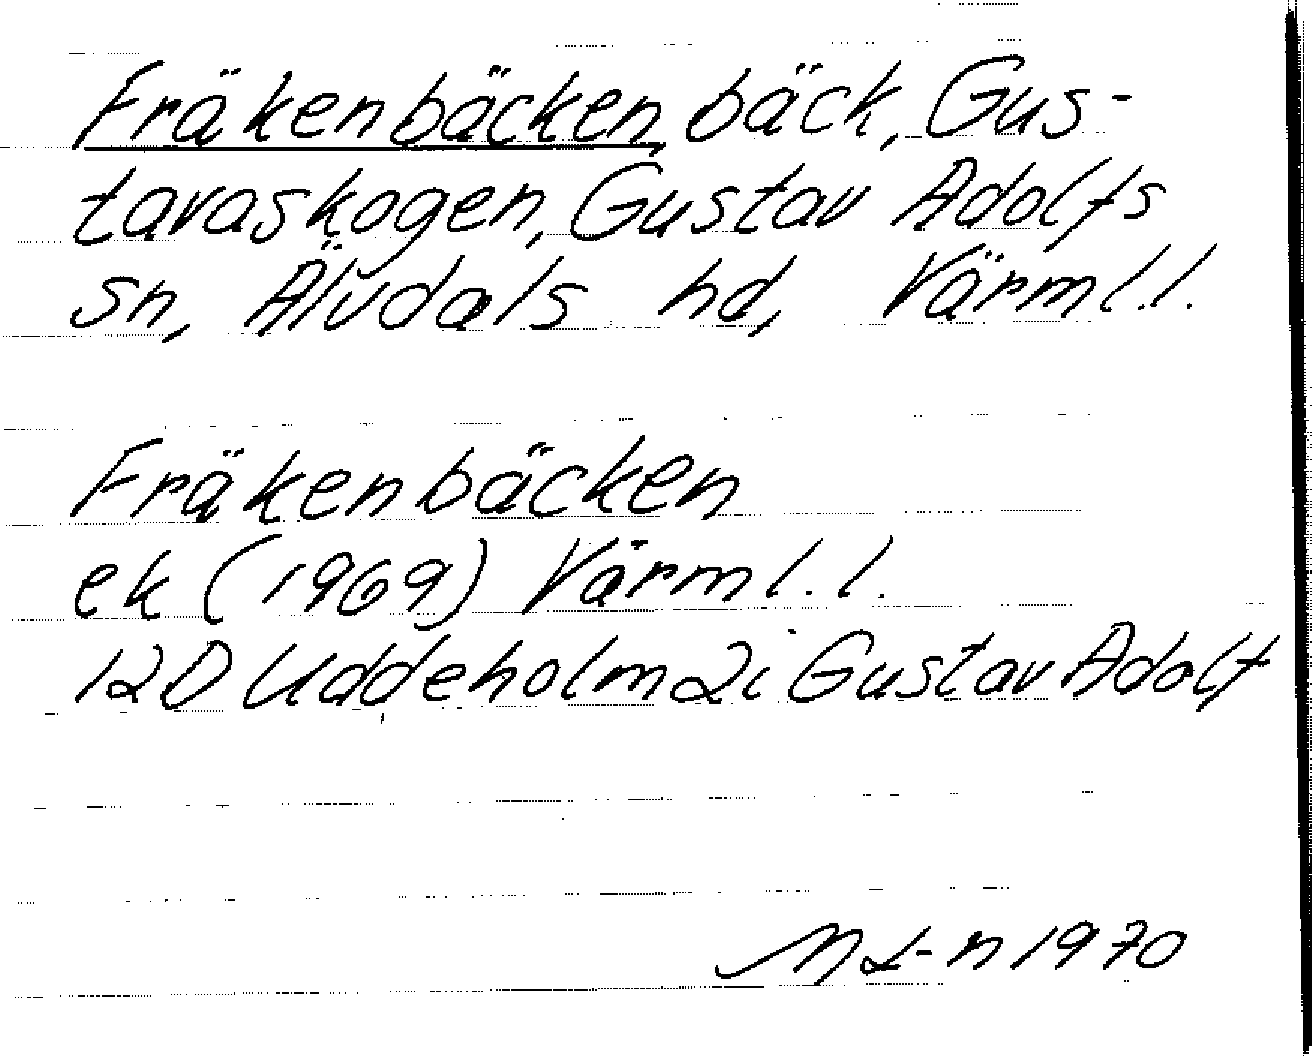 Fräkenbäcken, bäck, Gus-
tavaskogen, Gustav Adolfs
sn, Älvdals hd, Värml.l.
Fräkenbäcken
ek (1969) Värml.l.
12D Uddeholm 2i Gustav Adolf
M L-n 1970